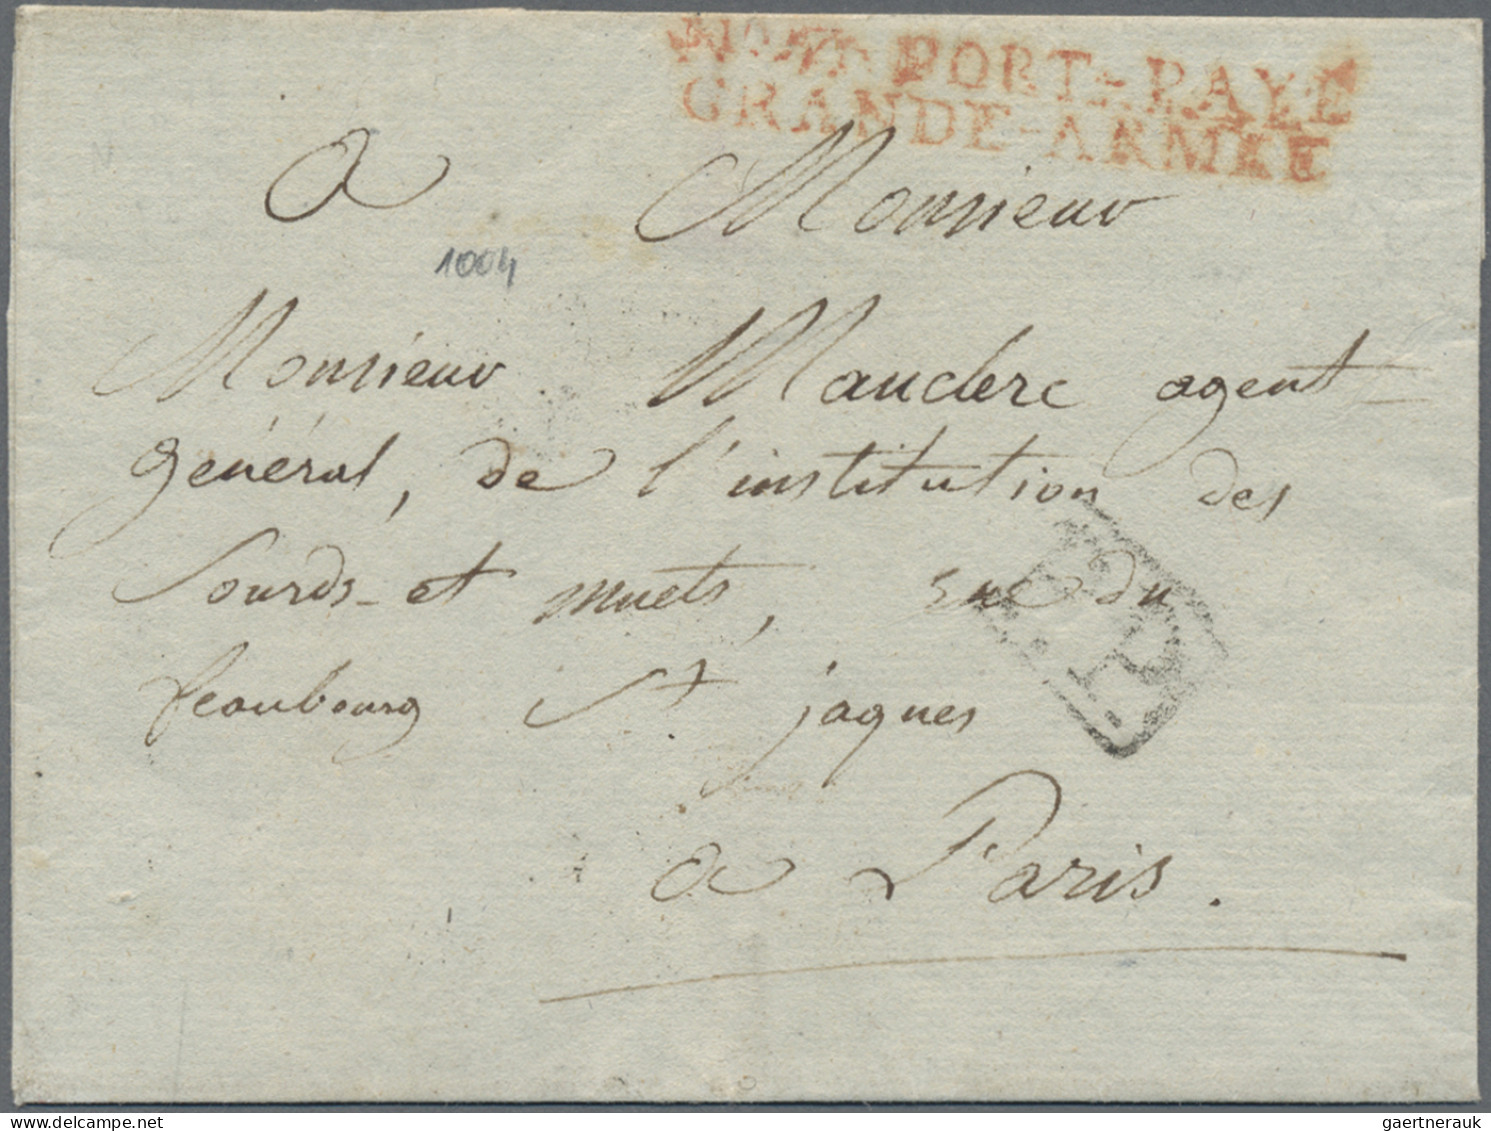 PORT-PAYÉ
GRANDE-ARMÉE
a Monsieur
1004
Monsieur Mauclerc agent
général, de l'institution des
Sourds-et muets, rue du
feaubourg St jaques
P
a Paris.
www.delcampe.net
gaertnerauk